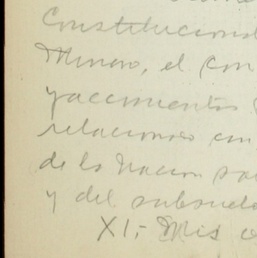 Constitucional
Minero, el con
yacimientos
relaciones con
de la Nacion
y del subsuelo
XI,- Mis